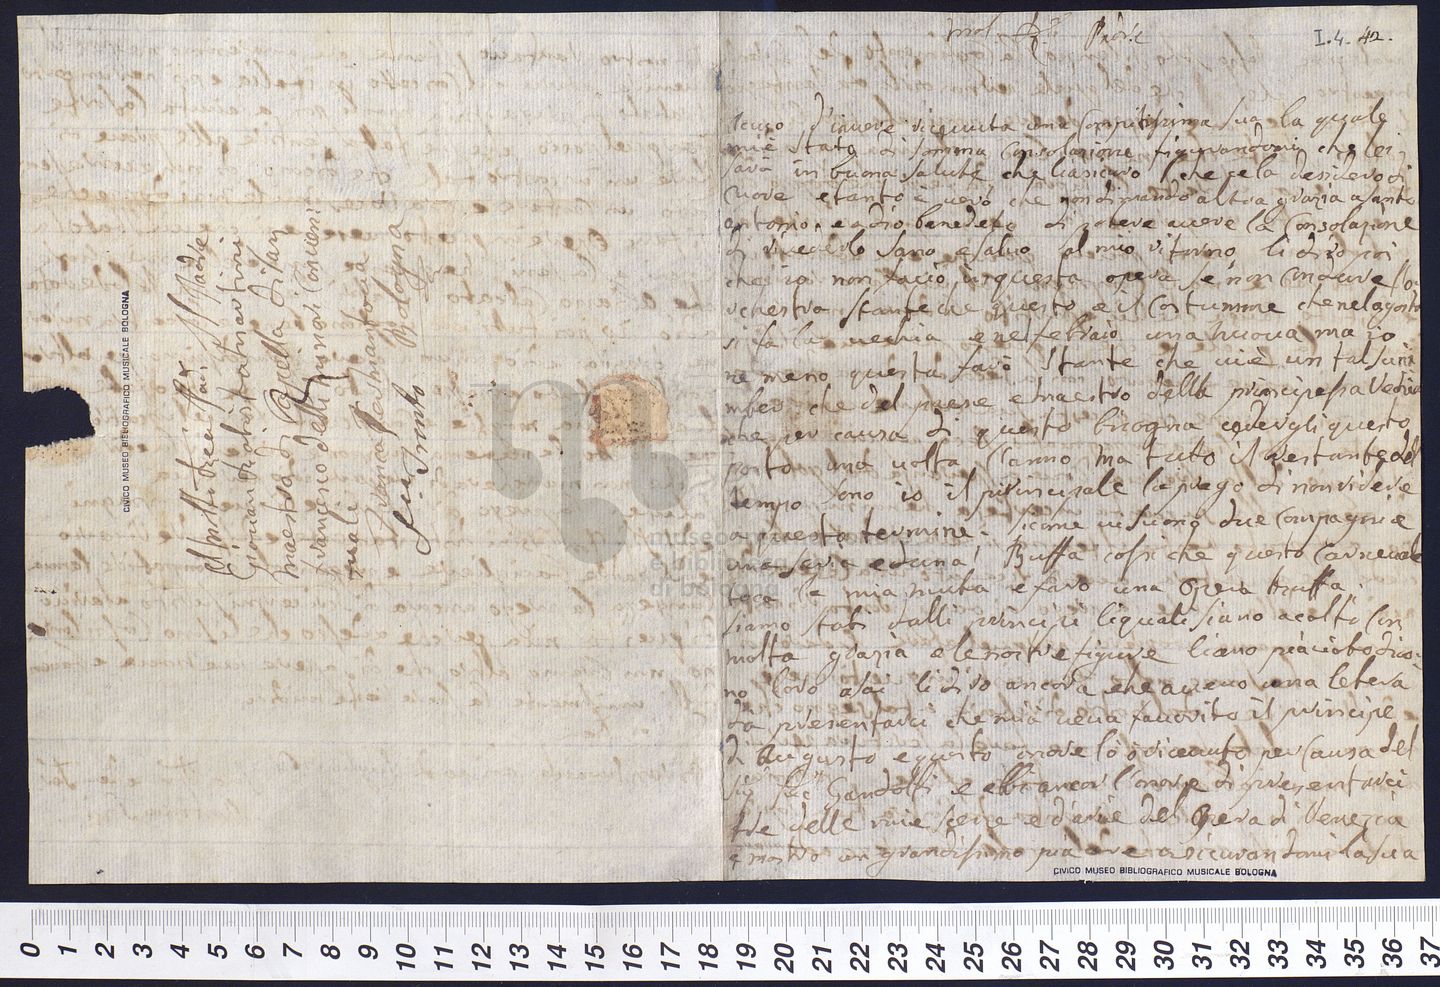 Al molto Rev: Pre
Sig: Padre
Giovan Batista martini
maestro di Capella di San
Francesco delli minori Conven:
tuali
Franca per mantova
Bologna
Sin Trento
CIVICO MUSEO BIBLIOGRAFICO MUSICALE BOLOGNA
I.4. 42.
Mol: Padre
d'avere ricevuta una Compitissima sua la quale
mi è stato di somma Consolazione figurandomi che lei
sarà in buona salute che l'asicuro che ce la desidero di
cuore e tanto è vero che non dimando altra grazia a santo
antonio, e a dio benedeto di potere avere la Consolazione
di rivederlo sano e salvo al mio ritorno, li dirò poi
che io non facio in questa opera se non Condure l'or
chestra stante che questo e il Costumme che nel agosto
si fa la vechia e nel febraio una nuova ma io
ne meno questa farò stante che vi è un tal
che del paese e maestro della principessa
che per causa di questo bisogna cedergli questo
posto una volta l'anno ma tutto il restante del
tempo sono io il principale la prego di non ridere
a questo termine. Sicome vi sono due Compagnie
una seria ed una Buffa cosi che questo Carnevale
toca la mia muta e farò una Opera buffa.
siamo stati dalli principi li quali siamo acolti Con
molta grazia e le nostre figure li ano piaciuto dico
no loro asai li dirò ancora che avevo una letera
da presentarci che mi à favorito il principe
di Augusto e questo onore lo ò ricevuto per causa del
sig: Gandolfi e ebbi ancor l'onore di presentarci
tre delle mie scene ed arie del Opera di Venezia
e mostrò un grandissimo piacere asicurandomi la sua
CIVICO MUSEO BIBLIOGRAFICO MUSICALE BOLOGNA
museo
e biblio
di bologna
0 1 2 3 4 5 6 7 8 9 10 11 12 13 14 15 16 17 18 19 20 21 22 23 24 25 26 27 28 29 30 31 32 33 34 35 36 37